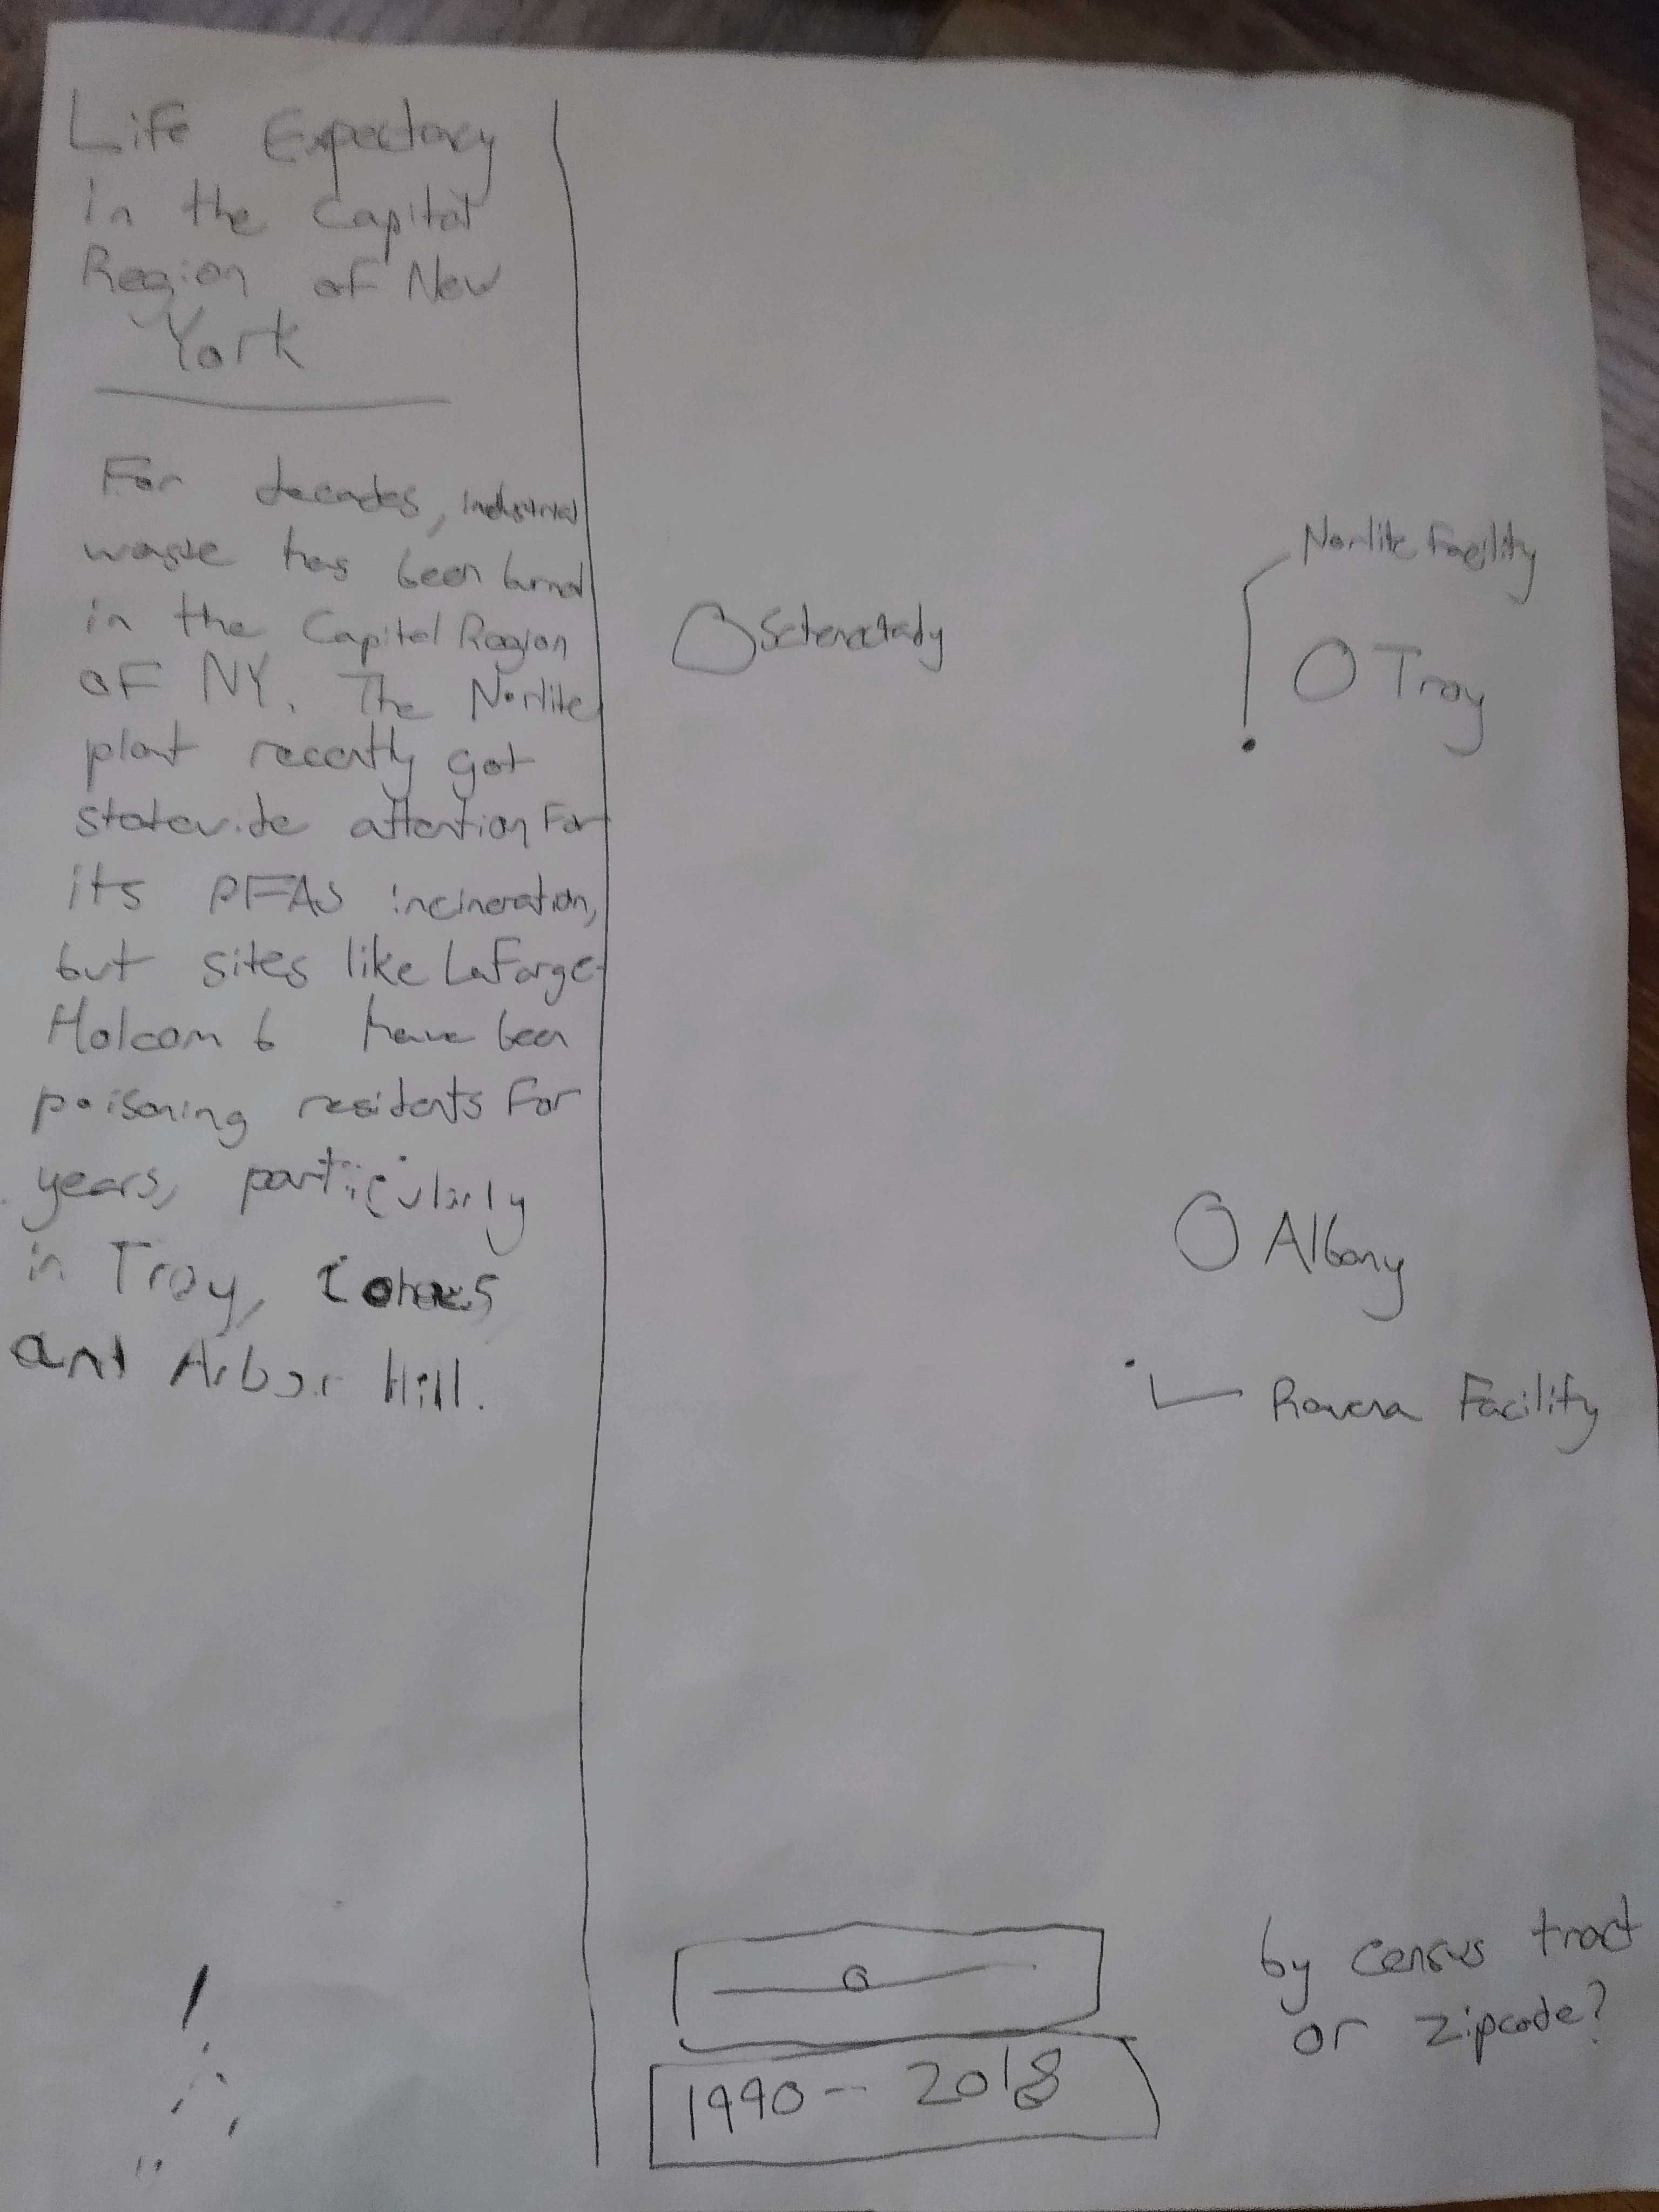 Life Expectancy
in the Capital
Region of New
York
For decades, industrial
waste has been burned
in the Capital Region
of NY. The Norlite
plant recently got
statewide attention For
its PFAS incineration,
but sites like LaFarge-
Holcom b have been
poisoning residents For
years, particularly
in Troy, Cohoes
and Arbor Hill.
Norlite Facility
Schenectady
Troy
Albany
Ravena Facility
by census tract
or zipcode?
1990 -- 2018